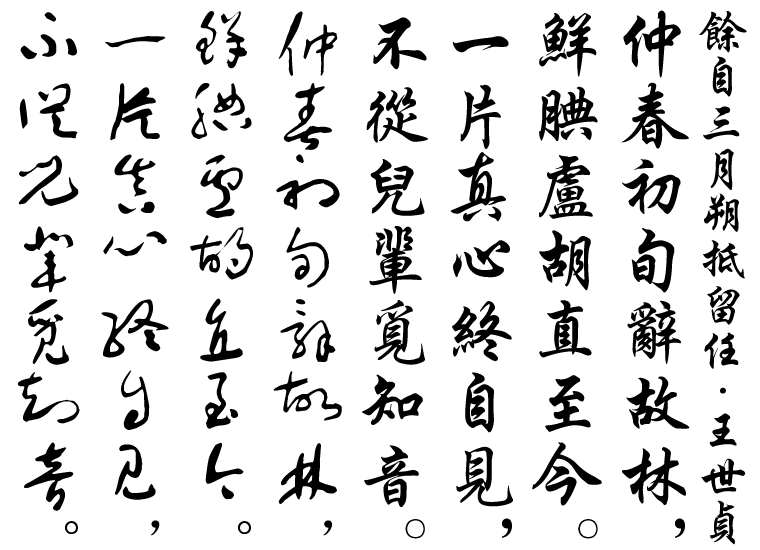 餘自三月朔抵留任·王世貞
仲春初旬辭故林，
鮮腆盧胡直至今。
一片真心終自見，
不從兒輩覓知音。
仲春初旬辭故林，
鮮腆盧胡直至今。
一片真心終自見，
不從兒輩覓知音。